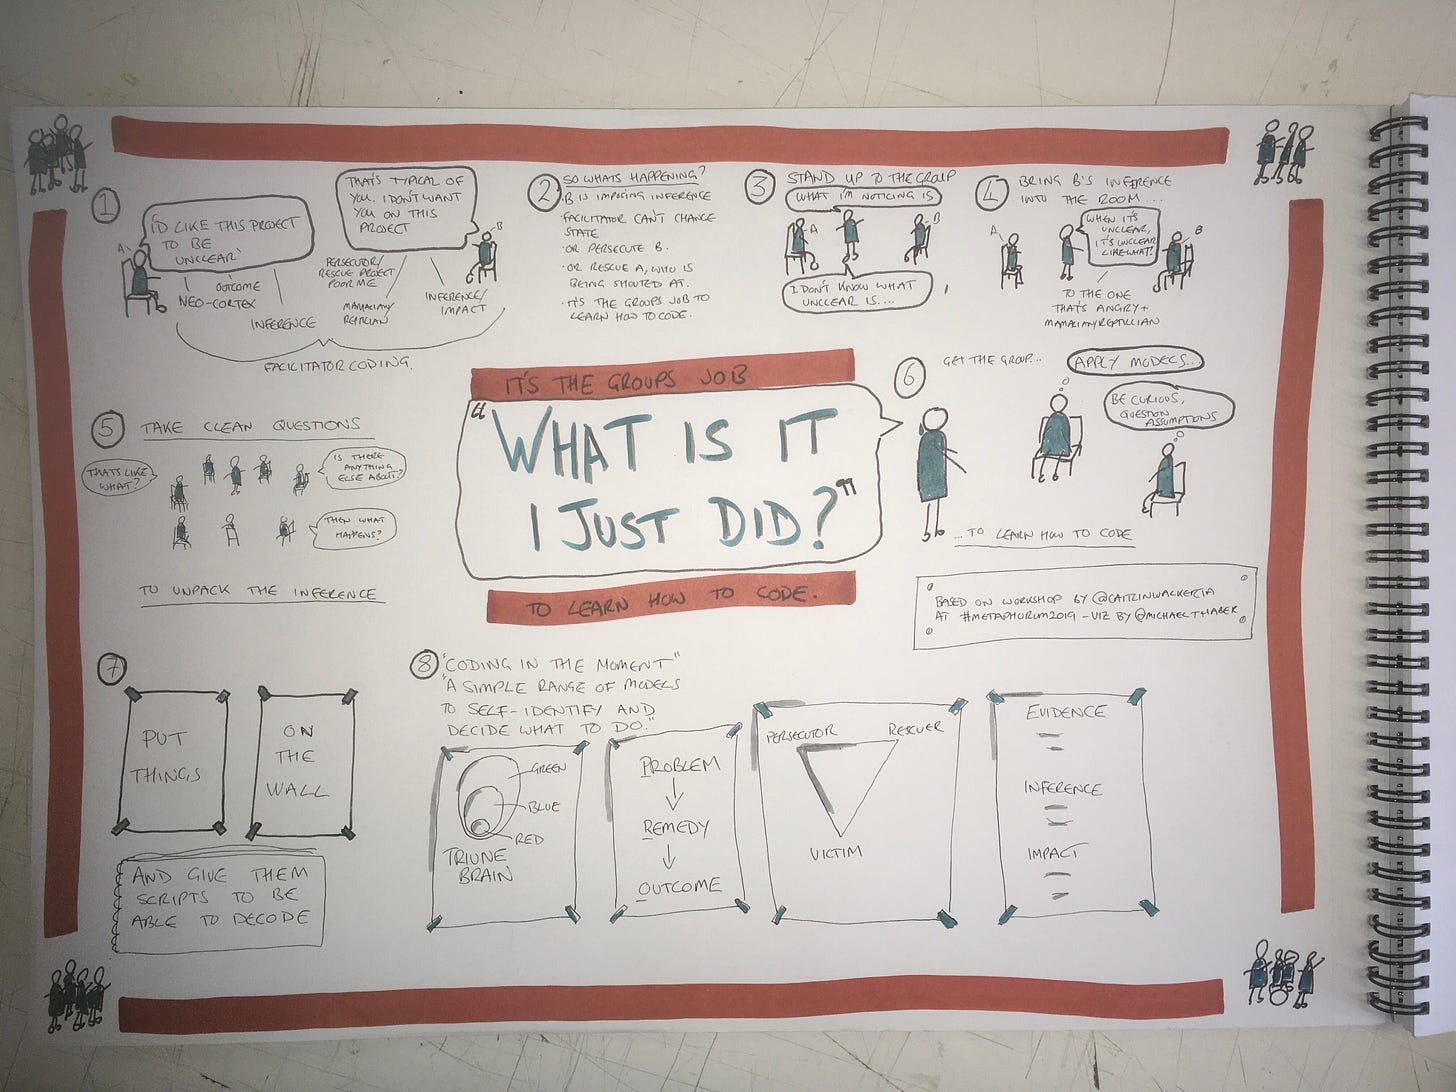 1
I'D LIKE THIS PROJECT
TO BE
UNCLEAR'
A
OUTCOME
NEO-CORTEX
INFERENCE
THAT'S TYPICAL OF
YOU. I DON'T WANT
YOU ON THIS
PROJECT
B
PERSECUTOR/
RESCUE PROJECT
POOR ME
MAMALIAN/
REPTILIAN
INFERENCE/
IMPACT
FACILITATOR CODING.
2
SO WHATS HAPPENING?
·B IS IMPOSING INFERENCE
·FACILITATOR CAN'T CHANGE
STATE
·OR PERSECUTE B.
·OR RESCUE A, WHO IS
BEING SHOUTED AT.
·IT'S THE GROUPS JOB TO
LEARN HOW TO CODE.
3
STAND UP TO THE GROUP
WHAT I'M NOTICING IS
A
B
I DON'T KNOW WHAT
UNCLEAR IS....
4
BRING B'S INFERENCE
INTO THE ROOM...
A
WHEN IT'S
UNCLEAR,
IT'S UNCLEAR
LIKE WHAT?
B
TO THE ONE
THAT'S ANGRY +
MAMALIAN/REPTILLIAN
5
TAKE CLEAN QUESTIONS
THATS LIKE
WHAT?
IS THERE
ANYTHING
ELSE ABOUT?
THEN WHAT
HAPPENS?
TO UNPACK THE INFERENCE
IT'S THE GROUPS JOB
"WHAT IS IT
I JUST DID?"
TO LEARN HOW TO CODE.
6
GET THE GROUP...
APPLY MODELS...
BE CURIOUS,
QUESTION
ASSUMPTIONS
... TO LEARN HOW TO CODE
BASED ON WORKSHOP BY @CAITRINWALKERTA
AT #METAPHORUM2019 - VIZ BY @MICHAELTHABER
7
PUT
THINGS
ON
THE
WALL
AND GIVE THEM
SCRIPTS TO BE
ABLE TO DECODE
8
"CODING IN THE MOMENT"
"A SIMPLE RANGE OF MODELS
TO SELF-IDENTIFY AND
DECIDE WHAT TO DO."
GREEN
BLUE
RED
TRIUNE
BRAIN
PROBLEM
REMEDY
OUTCOME
PERSECUTOR
RESCUER
VICTIM
EVIDENCE
INFERENCE
IMPACT